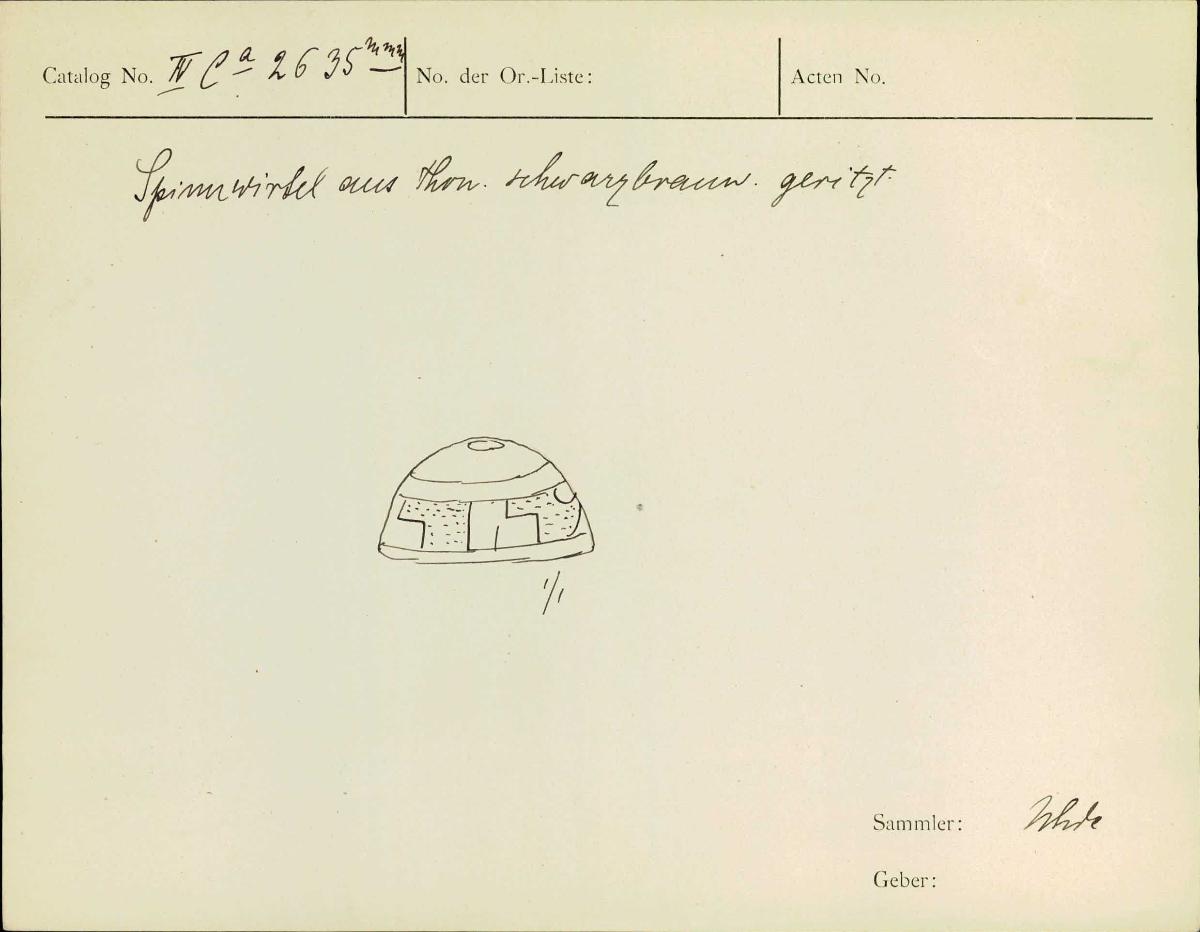 Catalog No. IV Ca 2635 mmm No. der Or.-Liste: Acten No.
Spinnwirtel aus Thon. schwarzbraun. geritzt.
1/1
Sammler: Uhde
Geber: